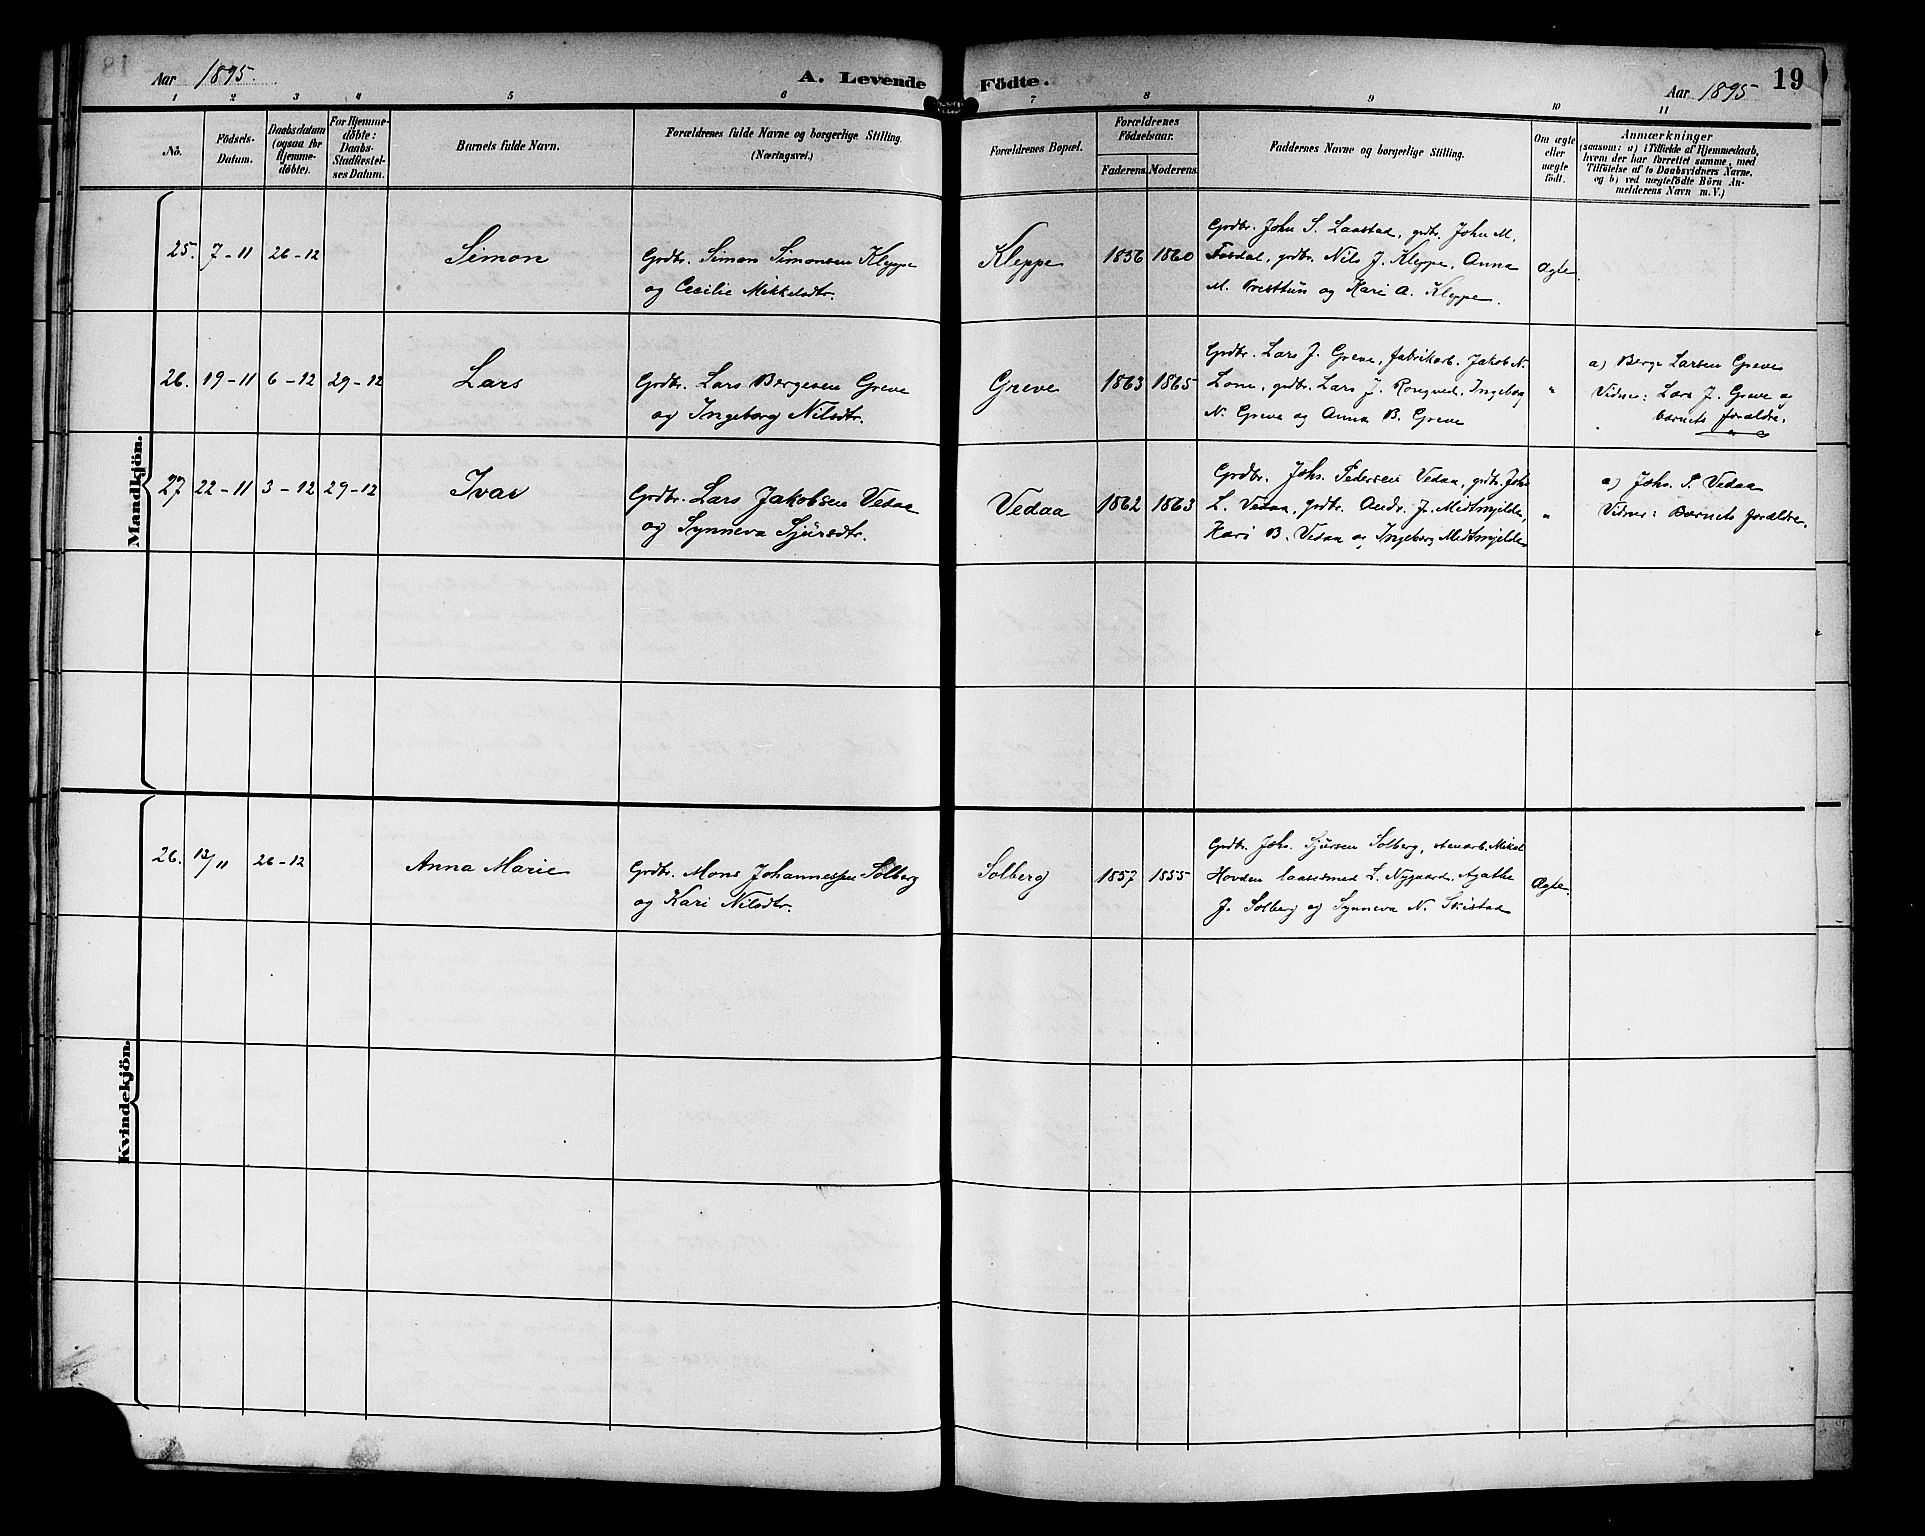 Aar 1895.
A. Levende Födte.
19
Aar 1895
1 2 3 4 5 6 7 8 9 10 11
No.
Födsels-Datum.
Daabsdatum (ogsaa for Hjemme-döbte).
For Hjemme-döbte: Daabs-Stadfæstel-ses Datum.
Barnets fulde Navn.
Forældrenes fulde Navne og borgerlige Stilling.
(Næringsvei.)
Forældrenes Bopæl.
Forældrenes Födselsaar.
Faderens. Moderens.
Faddernes Navne og borgerlige Stilling.
Om ægte eller uægte födt.
Anmærkninger
(saasom: a) i Tilfælde af Hjemmedaab,
hvem der har forrettet samme, med
Tilföielse af to Daabsvidners Navne,
og b) ved uægtefödte Börn An-
melderens Navn m. V.)
Mandkjön.
25. 7-11 26-12 Simon
Grdbr. Simon Simonsen Kleppe
og Cecilie Mikkelsdtr.
Kleppe 1856 1860
Grdbr. John S. Laastad, grdbr. John M.
Fosdal, grdbr. Nils J. Kleppe, Anna
M. Presthun og Kari A. Kleppe.
Ægte.
26. 19-11 6-12 29-12 Lars
Grdbr. Lars Bergesen Greve
og Ingeborg Nilsdtr.
Greve 1863 1865
Grdbr. Lars J. Greve, fabrikarb. Jakob N.
Lone, grdbr. Lars J. Rongved, Ingeborg
N. Greve og Anna B. Greve
"
a) Berge Larsen Greves
Vidner: Lars J. Greve og
barnets forældre.
27 22-11 3-12 29-12 Ivar
Grdbr. Lars Jakobsen Vedaa
og Synneva Sjursdtr.
Vedaa 1862 1863
Grdbr. Johs. Pedersen Vedaa, grdbr. Johs
L. Vedaa, grdbr. Andr. J. Medtmjelde,
Kari B. Vedaa og Ingeborg Medtmjelde
"
a) Johs. P. Vedaa
Vidner: Barnets forældre.
Kvindekjön.
26. 13/11 26-12 Anna Marie
Grdbr. Mons Johannessen Solberg
og Kari Nilsdtr.
Solberg 1857 1855
Grdbr. Johs. Sjursen Solberg, Mikal
Hovden L. Nygaard, Agathe
J. Solberg og Synneva N. Skistad
Ægte.